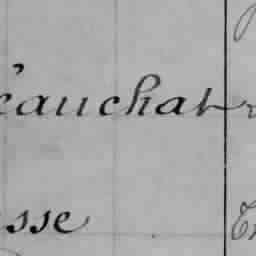 eauchat
sse